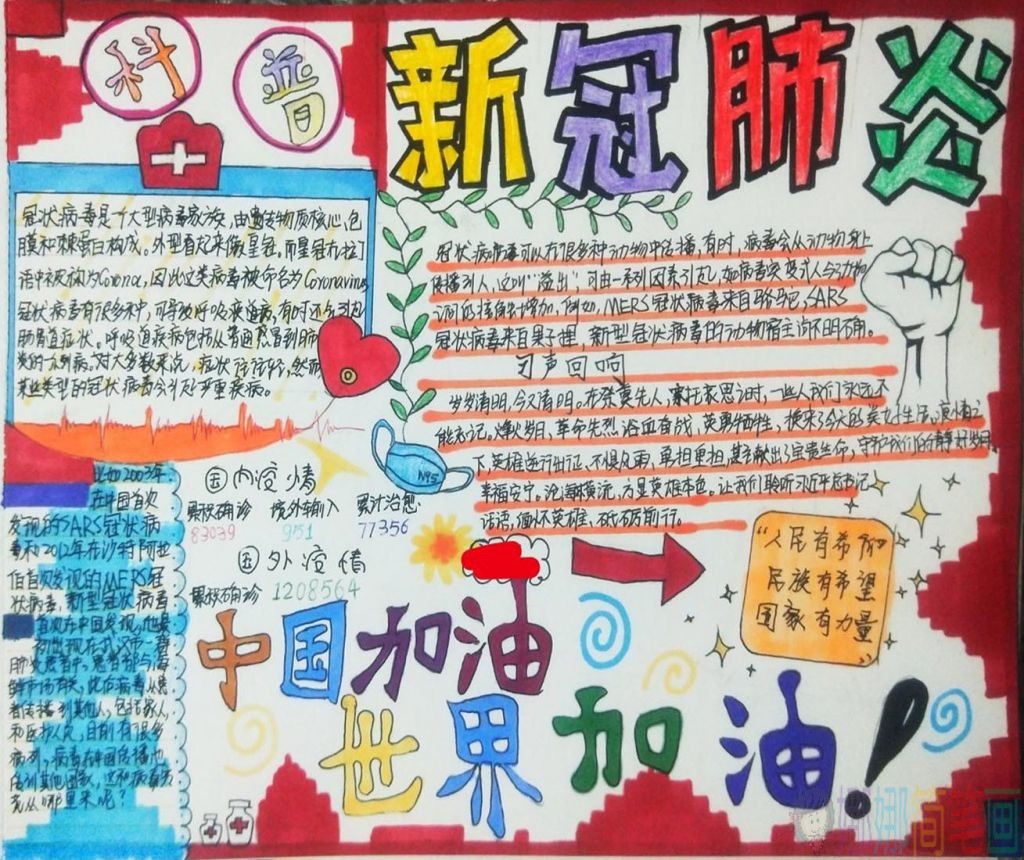 科普
新冠肺炎
冠状病毒是一个大型病毒家族，由遗传物质核心，包
膜和棘蛋白构成。外型看起来像皇冠。而皇冠在拉丁
语中被称为Corona，因此这类病毒被命名为Coronavirus
冠状病毒有很多种，可导致呼吸疾道病，有时还会引起
肠胃道症状。呼吸道疾病包括从普通感冒到肺
对大多数来说，症状往往轻，然而
某些类型的冠状病毒会引起严重疾病。
冠状病毒可以在很多种动物中传播，有时，病毒会从动物身上
传播到人，这叫“溢出”，可由一系列因素引起，如病毒突变或人与动物
间的接触增加，例如，MERS冠状病毒来自骆驼，SARS
冠状病毒来自果子狸，新型冠状病毒的动物宿主尚不明确。
习声回响
岁岁清明，今又清明。在祭奠先人，寄托哀思之时，一些人我们永远不
能忘记，烽火岁月，革命先烈浴血奋战，英勇牺牲，换来了今天的美好生活，疫情之
下，英雄逆行出征，不惧风雨，勇担重担，甚至献出了宝贵生命，守护我们的静好岁月
幸福安宁。沧海横流，方显英雄本色。让我们聆听习近平总书记
话语，缅怀英雄，砥砺前行。
N95
比如2003年
在中国首次
发现的SARS冠状病
毒和2012年在沙特阿拉
伯首次发现的MERS冠
状病毒，新型冠状病毒
首次在中国发现，他最
初出现在武汉市一群
肺炎患者中。患者都与海
鲜市场有关，此后病毒从患
者传播到其他人，包括家人
和医护人员，目前有很多
病例，病毒在中国传播也
传到其他国家，这种病毒究
竟从哪里来呢？
国内疫情
累积确诊 境外输入 累计治愈
83039 951 77356
国外疫情
累积确诊 1208564
“人民有希仰
民族有希望
国家有力量”
中国加油
世界加油！
娜娜简笔画